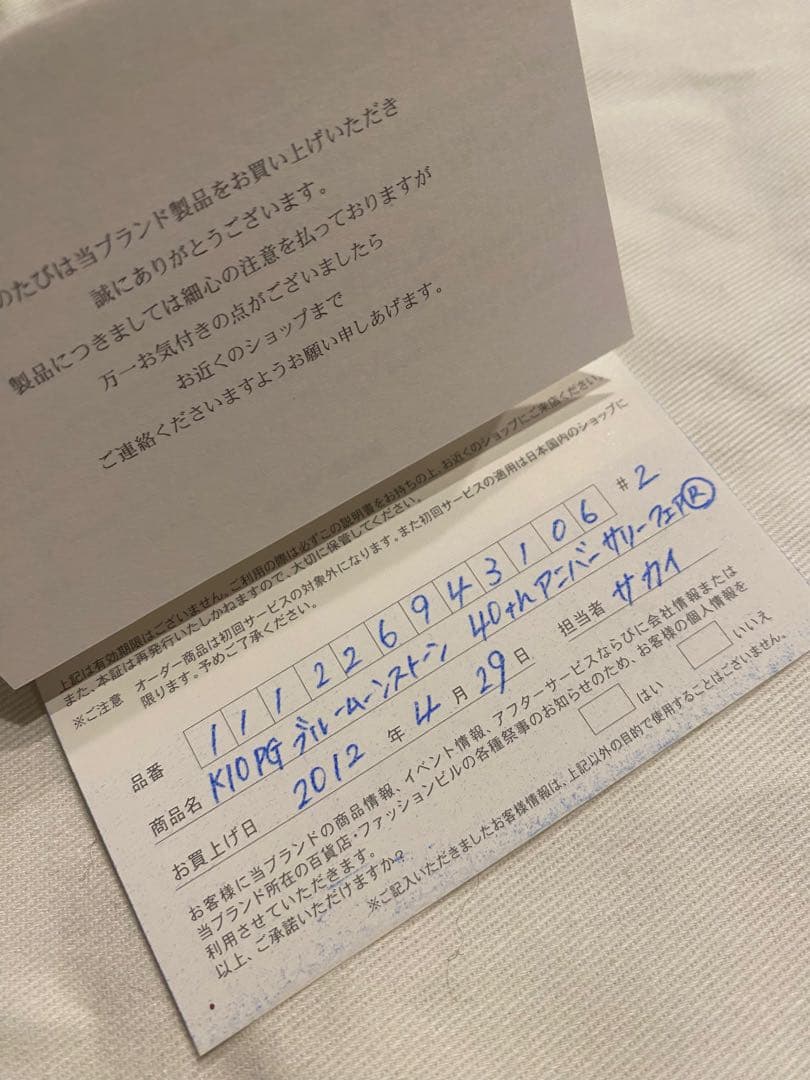 のたびは当ブランド製品をお買い上げいただき
誠にありがとうございます。
製品につきましては細心の注意を払っておりますが
万一お気付きの点がございましたら
お近くのショップまで
ご連絡くださいますようお願い申しあげます。
上記は有効期限はございません。ご利用の際は必ずこの説明書をお持ちの上、お近くのショップにご来店ください。
また、本証は再発行いたしかねますので、大切に保管してください。
※ご注意 オーダー商品は初回サービスの対象外になります。また初回サービスの適用は日本国内のショップに
限ります。予めご了承ください。
品番 111226943106 #2
商品名 K10PG ブルームーンストーン 40thアニバーサリーフェア®
お買上げ日 2012年4月29日 担当者 サカイ
お客様に当ブランドの商品情報、イベント情報、アフターサービスならびに会社情報または
当ブランド所在の百貨店・ファッションビルの各種祭事のお知らせのため、お客様の個人情報を
利用させていただきます。
以上、ご承諾いただけますか? はい いいえ
※ご記入いただきましたお客様情報は、上記以外の目的で使用することはございません。